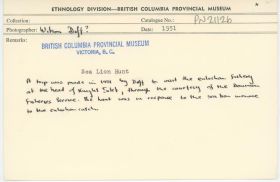 ETHNOLOGY DIVISION—BRITISH COLUMBIA PROVINCIAL MUSEUM
Collection: Catalogue No.: PN21126
Photographer: Wilson Duff? Date: 1951
Remarks:
BRITISH COLUMBIA PROVINCIAL MUSEUM
VICTORIA, B. C.
Sea Lion Hunt
A trip was made in 1951 by Duff to visit the eulachon fishery
at the head of Knight Inlet, through the courtesy of the Dominion
Fisheries Service. The hunt was in response to the sea lion menace
to the eulachon catch.